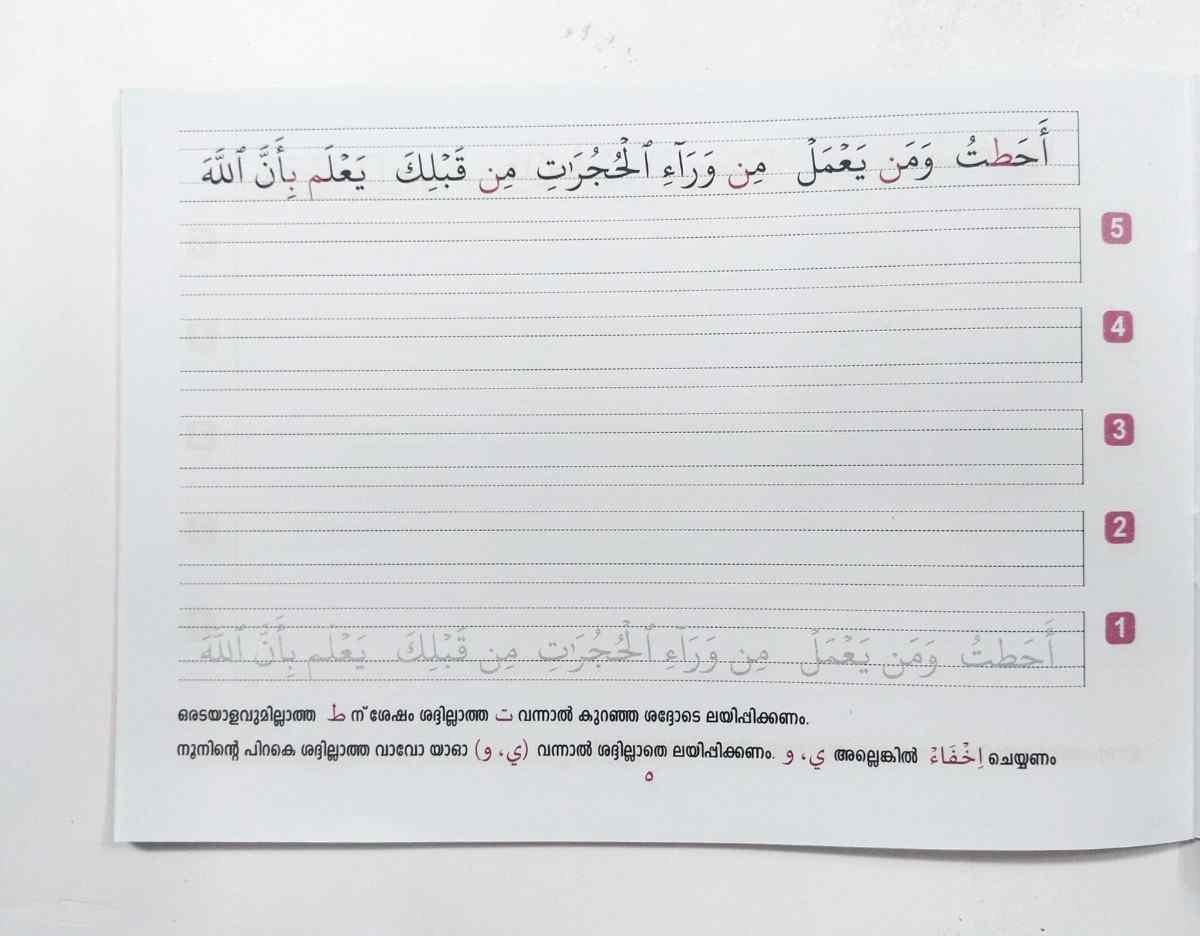 أَحَطتُ وَمَن يَعْمَلْ مِن وَرَآءِ ٱلْحُجُرَٰتِ مِن قَبْلِكَ يَعْلَم بِأَنَّ ٱللَّهَ
5
4
3
2
1
أَحَطتُ وَمَن يَعْمَلْ مِن وَرَآءِ ٱلْحُجُرَٰتِ مِن قَبْلِكَ يَعْلَم بِأَنَّ ٱللَّهَ
ഒരടയാളവുമില്ലാത്ത ط ന് ശേഷം ശദ്ദില്ലാത്ത ت വന്നാൽ കുറഞ്ഞ ശദ്ദോടെ ലയിപ്പിക്കണം.
നൂനിന്റെ പിറകെ ശദ്ദില്ലാത്ത വാവോ യാഓ (ي، و) വന്നാൽ ശദ്ദില്ലാതെ ലയിപ്പിക്കണം. ي، و അല്ലെങ്കിൽ إِخْفَاءْ ചെയ്യണം
٥